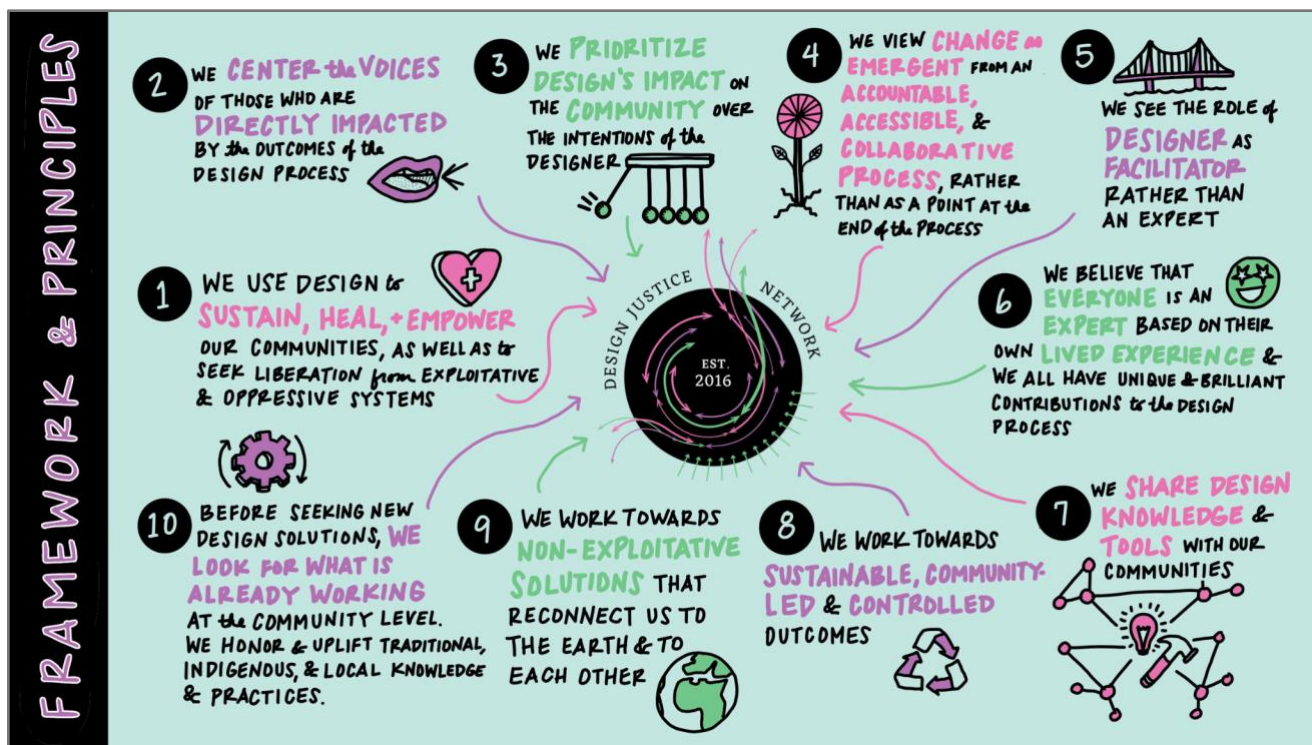 FRAMEWORK & PRINCIPLES
1
WE USE DESIGN to
SUSTAIN, HEAL, + EMPOWER
OUR COMMUNITIES, AS WELL AS to
SEEK LIBERATION from EXPLOITATIVE
& OPPRESSIVE SYSTEMS
2
WE CENTER the VOICES
OF THOSE WHO ARE
DIRECTLY IMPACTED
BY the OUTCOMES of the
DESIGN PROCESS
3
WE PRIORITIZE
DESIGN'S IMPACT ON
THE COMMUNITY OVER
THE INTENTIONS of the
DESIGNER
4
WE VIEW CHANGE as
EMERGENT FROM AN
ACCOUNTABLE,
ACCESSIBLE, &
COLLABORATIVE
PROCESS, RATHER
THAN AS A POINT AT the
END of the PROCESS
5
WE SEE THE ROLE of
DESIGNER AS
FACILITATOR
RATHER THAN
AN EXPERT
6
WE BELIEVE THAT
EVERYONE IS AN
EXPERT BASED ON THEIR
OWN LIVED EXPERIENCE &
WE ALL HAVE UNIQUE & BRILLIANT
CONTRIBUTIONS to the DESIGN
PROCESS
7
WE SHARE DESIGN
KNOWLEDGE &
TOOLS WITH OUR
COMMUNITIES
8
WE WORK TOWARDS
SUSTAINABLE, COMMUNITY-
LED & CONTROLLED
OUTCOMES
9
WE WORK TOWARDS
NON-EXPLOITATIVE
SOLUTIONS THAT
RECONNECT US TO
THE EARTH & TO
EACH OTHER
10
BEFORE SEEKING NEW
DESIGN SOLUTIONS, WE
LOOK FOR WHAT IS
ALREADY WORKING
AT the COMMUNITY LEVEL.
WE HONOR & UPLIFT TRADITIONAL,
INDIGENOUS, & LOCAL KNOWLEDGE
& PRACTICES.
DESIGN JUSTICE NETWORK
EST.
2016